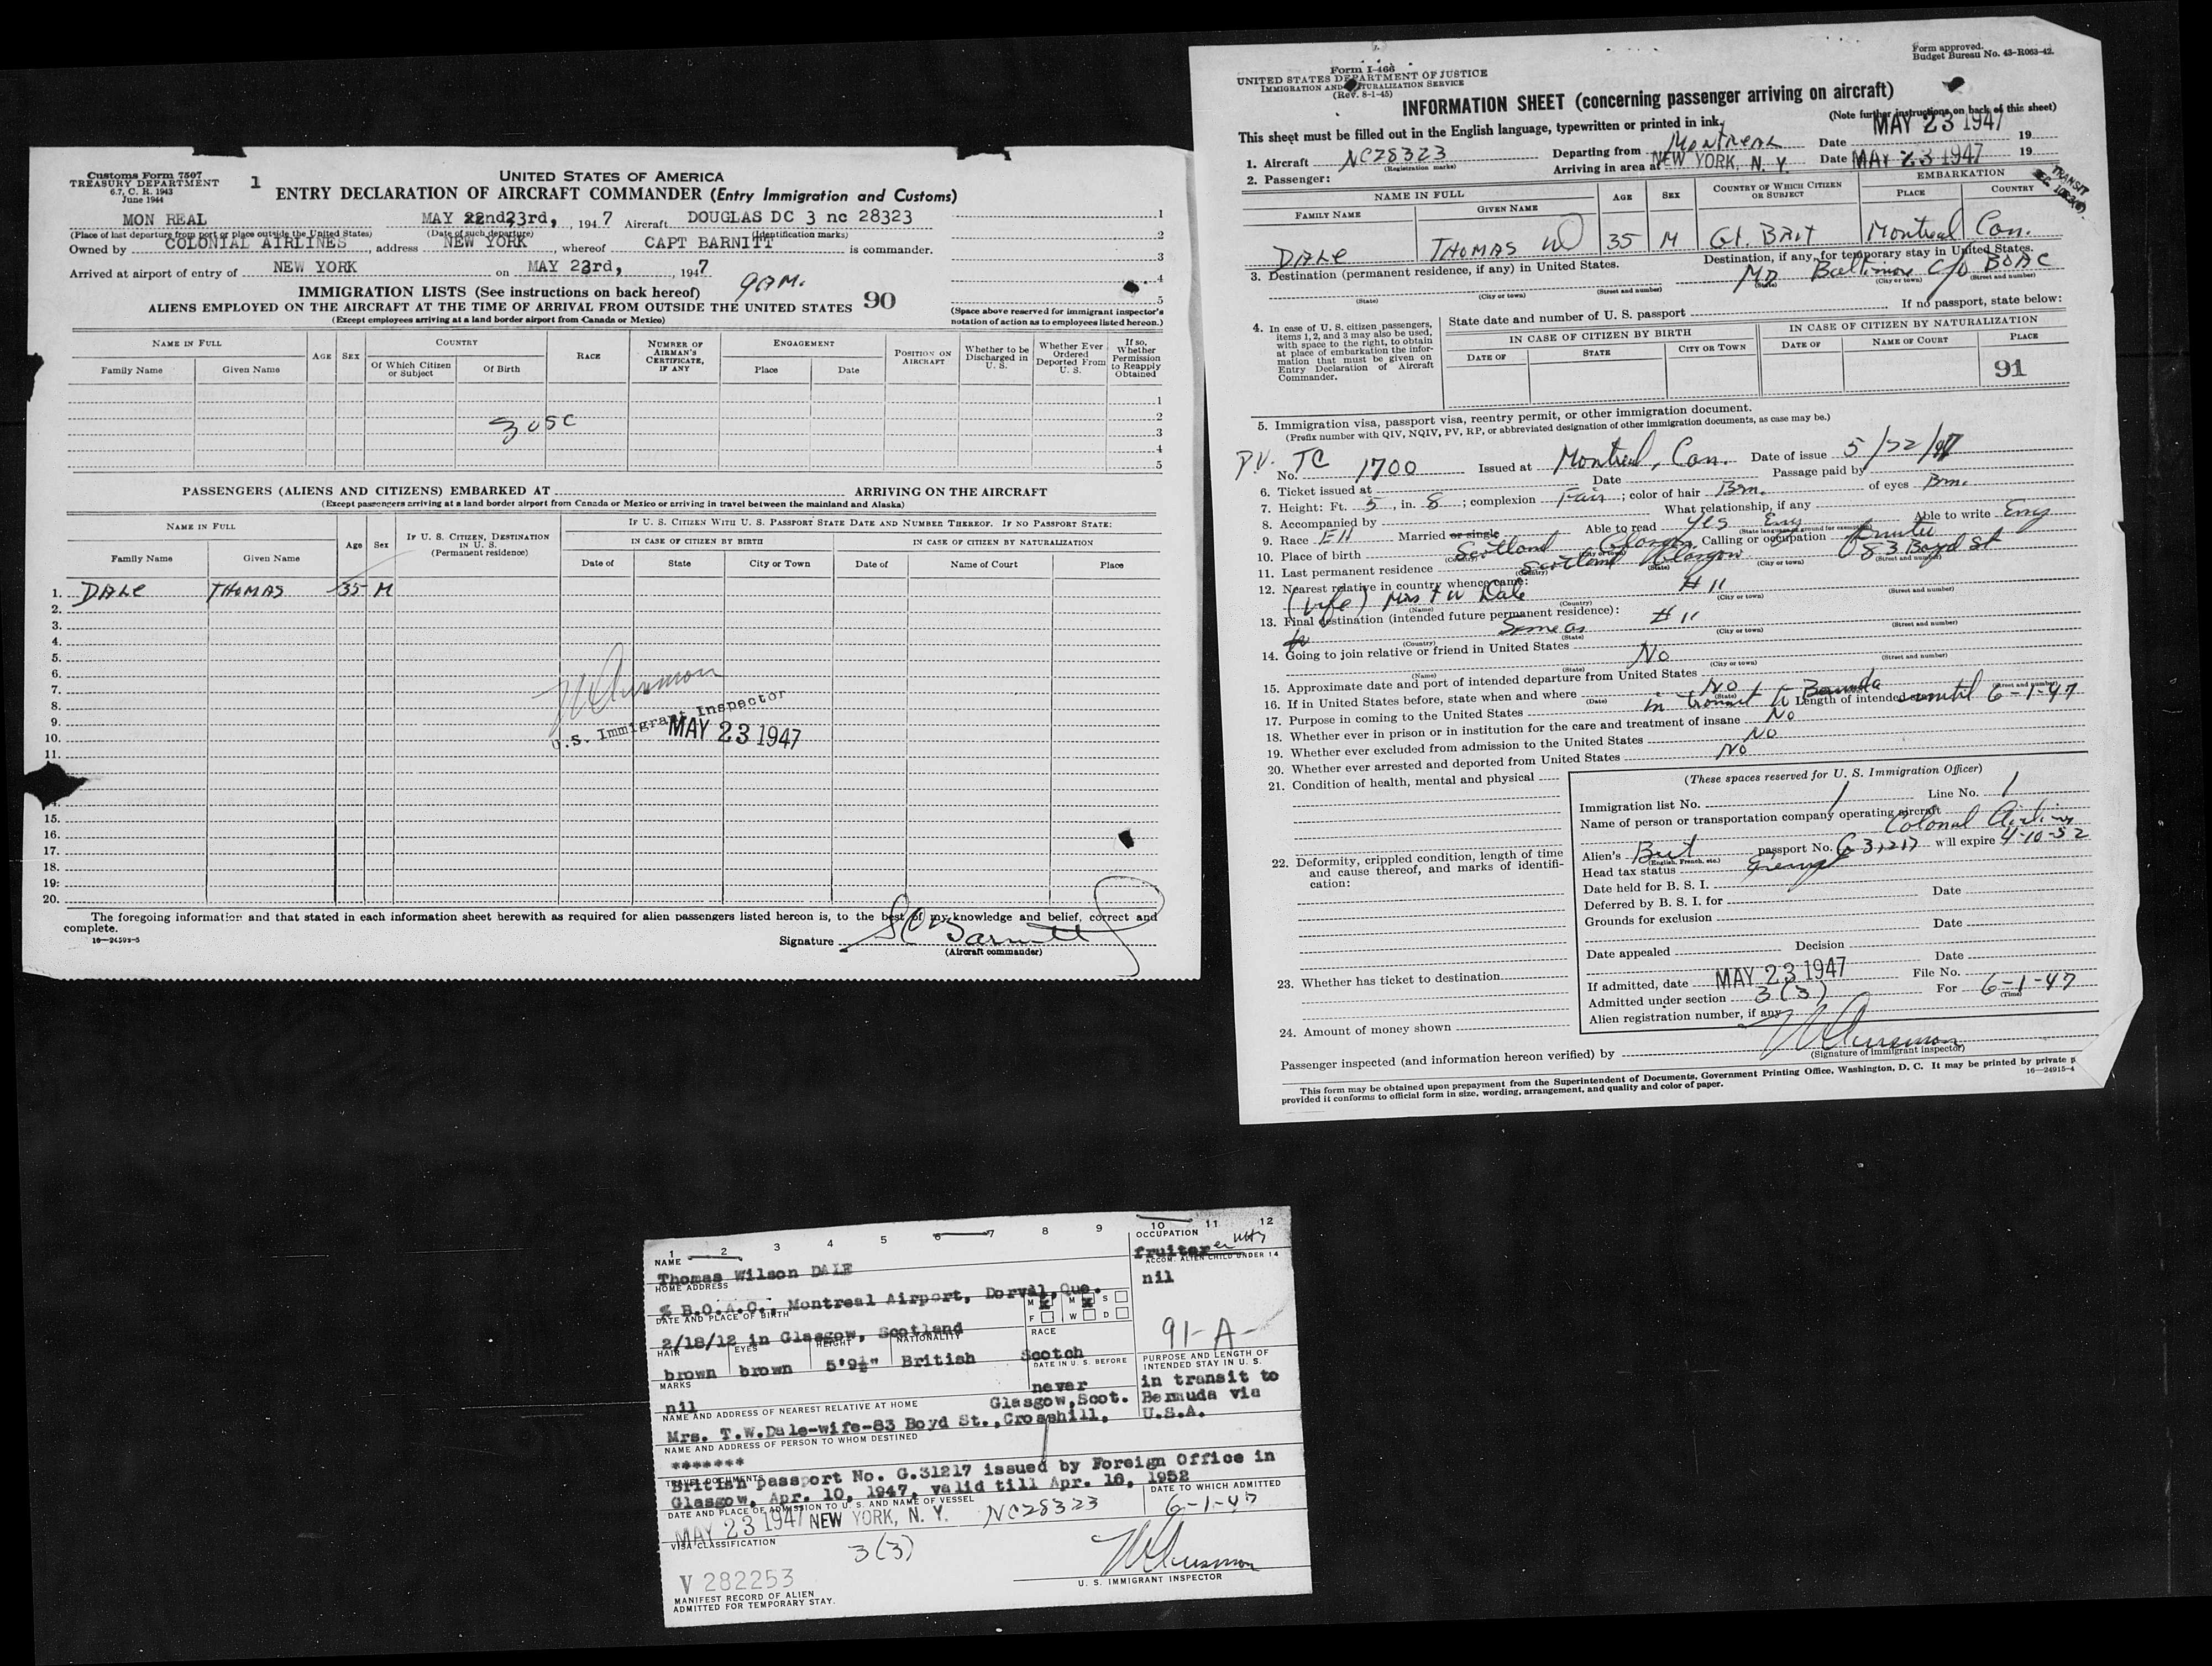 Customs Form 7507
TREASURY DEPARTMENT
6.7, C. R. 1943
June 1944
1
UNITED STATES OF AMERICA
ENTRY DECLARATION OF AIRCRAFT COMMANDER (Entry Immigration and Customs)
MON REAL MAY 22nd23rd, , 1947 Aircraft DOUGLAS DC 3 nc 28323
(Place of last departure from port or place outside the United States) (Date of such departure) (Identification marks)
Owned by COLONIAL AIRLINES , address NEW YORK , whereof CAPT BARNITT is commander.
Arrived at airport of entry of NEW YORK on MAY 23rd, , 1947
9 AM.
1
2
3
4
5
(Space above reserved for immigrant inspector's notation of action as to employees listed hereon.)
IMMIGRATION LISTS (See instructions on back hereof)
ALIENS EMPLOYED ON THE AIRCRAFT AT THE TIME OF ARRIVAL FROM OUTSIDE THE UNITED STATES 90
(Except employees arriving at a land border airport from Canada or Mexico)
NAME IN FULL AGE SEX COUNTRY RACE NUMBER OF AIRMAN'S CERTIFICATE, IF ANY ENGAGEMENT POSITION ON AIRCRAFT Whether to be Discharged in U. S. Whether Ever Ordered Deported From U. S. If so, Whether Permission to Reapply Obtained
Family Name Given Name Of Which Citizen or Subject Of Birth Place Date
1
2
3 USC
3
4
5
PASSENGERS (ALIENS AND CITIZENS) EMBARKED AT ARRIVING ON THE AIRCRAFT
(Except passengers arriving at a land border airport from Canada or Mexico or arriving in travel between the mainland and Alaska)
NAME IN FULL Age Sex IF U. S. CITIZEN, DESTINATION IN U. S. (Permanent residence) IF U. S. CITIZEN WITH U. S. PASSPORT STATE DATE AND NUMBER THEREOF. IF NO PASSPORT STATE:
IN CASE OF CITIZEN BY BIRTH IN CASE OF CITIZEN BY NATURALIZATION
Family Name Given Name Date of State City or Town Date of Name of Court Place
1. DALE THOMAS 35 M
2.
3.
4.
5.
6.
7.
8.
9.
10.
11.
U.S. Immigrant Inspector
MAY 23 1947
15.
16.
17.
18.
19.
20.
The foregoing information and that stated in each information sheet herewith as required for alien passengers listed hereon is, to the best of my knowledge and belief, correct and
complete.
16—24593-5
Signature
(Aircraft commander)
Form I-466
UNITED STATES DEPARTMENT OF JUSTICE
IMMIGRATION AND NATURALIZATION SERVICE
(Rev. 8-1-45)
Form approved.
Budget Bureau No. 43-R063-42.
INFORMATION SHEET (concerning passenger arriving on aircraft)
(Note further instructions on back of this sheet)
This sheet must be filled out in the English language, typewritten or printed in ink.
1. Aircraft NC28323 Departing from Montreal Date MAY 23 1947 19
(Registration marks) Arriving in area at NEW YORK, N. Y. Date MAY 23 1947 19
2. Passenger:
TRANSIT
NAME IN FULL AGE SEX COUNTRY OF WHICH CITIZEN OR SUBJECT EMBARKATION
FAMILY NAME GIVEN NAME PLACE COUNTRY
DALE THOMAS W 35 M Gt. BRIT Montreal Can.
3. Destination (permanent residence, if any) in United States. Destination, if any, for temporary stay in United States.
MD Baltimore c/o BOAC
(State) (City or town) (Street and number) (State) (City or town) (Street and number)
4. In case of U. S. citizen passengers, items 1, 2, and 3 may also be used, with space to the right, to obtain at place of embarkation the information that must be given on Entry Declaration of Aircraft Commander.
State date and number of U. S. passport If no passport, state below:
IN CASE OF CITIZEN BY BIRTH IN CASE OF CITIZEN BY NATURALIZATION
DATE OF STATE CITY OR TOWN DATE OF NAME OF COURT PLACE
91
5. Immigration visa, passport visa, reentry permit, or other immigration document.
(Prefix number with QIV, NQIV, PV, RP, or abbreviated designation of other immigration documents, as case may be.)
P.V. No. TC 1700 Issued at Montreal, Can. Date of issue 5/22/47
6. Ticket issued at Date Passage paid by
7. Height: Ft. 5, in. 8; complexion Fair; color of hair Brn. of eyes Brn.
8. Accompanied by What relationship, if any
9. Race Married or single Able to read Yes Eng Able to write Eng
(State language or ground for exemption)
10. Place of birth Scotland Glasgow Calling or occupation
(Country) (City or town)
11. Last permanent residence Scotland Glasgow 83 Boyd St
(Country) (State) (City or town) (Street and number)
12. Nearest relative in country whence came:
(Wife) Mrs T W Dale # 11
(Name) (Country) (City or town) (Street and number)
13. Final destination (intended future permanent residence):
Same as # 11
(Country) (State) (City or town) (Street and number)
14. Going to join relative or friend in United States No
(Name) (State) (City or town) (Street and number)
15. Approximate date and port of intended departure from United States
16. If in United States before, state when and where No
(Date) (State) (Street and number)
17. Purpose in coming to the United States in transit to Bermuda Length of intended until 6-1-47
18. Whether ever in prison or in institution for the care and treatment of insane No
19. Whether ever excluded from admission to the United States No
20. Whether ever arrested and deported from United States No
21. Condition of health, mental and physical
22. Deformity, crippled condition, length of time and cause thereof, and marks of identification:
23. Whether has ticket to destination
24. Amount of money shown
(These spaces reserved for U. S. Immigration Officer)
Immigration list No. 1 Line No. 1
Name of person or transportation company operating aircraft
Colonial Airlines
Alien's Brit passport No. G 31217 will expire 4-10-52
(English, French, etc.)
Head tax status Exempt
Date held for B. S. I.
Deferred by B. S. I. for Date
Grounds for exclusion
Date
Date appealed Decision
Date
If admitted, date MAY 23 1947 File No.
Admitted under section 3(3) For 6-1-47
(Time)
Alien registration number, if any
Passenger inspected (and information hereon verified) by
(Signature of immigrant inspector)
This form may be obtained upon prepayment from the Superintendent of Documents, Government Printing Office, Washington, D. C. It may be printed by private p
provided it conforms to official form in size, wording, arrangement, and quality and color of paper.
16—24915-4
1 2 3 4 5 6 7 8 9 10 11 12
NAME
Thomas Wilson DALE
OCCUPATION
fruiterer
HOME ADDRESS
% B.O.A.C., Montreal Airport, Dorval, Que.
ACCOM. ALIEN CHILD UNDER 14
nil
DATE AND PLACE OF BIRTH
2/18/12 in Glasgow, Scotland
M X M X S
F W D
91-A-
HAIR EYES HEIGHT NATIONALITY RACE
brown brown 5'9½" British Scotch
MARKS
nil
DATE IN U. S. BEFORE
never
PURPOSE AND LENGTH OF INTENDED STAY IN U. S.
in transit to
Bermuda via
U.S.A.
NAME AND ADDRESS OF NEAREST RELATIVE AT HOME
Glasgow,Scot.
Mrs. T.W.Dale-wife-83 Boyd St.,Crosshill,
NAME AND ADDRESS OF PERSON TO WHOM DESTINED
*******
TRAVEL DOCUMENTS
British passport No. G.31217 issued by Foreign Office in
Glasgow, Apr. 10, 1947, valid till Apr. 10, 1952
DATE AND PLACE OF ADMISSION TO U. S. AND NAME OF VESSEL
MAY 23 1947 NEW YORK, N. Y. NC28323
DATE TO WHICH ADMITTED
6-1-47
VISA CLASSIFICATION
3(3)
V 282253
U. S. IMMIGRANT INSPECTOR
MANIFEST RECORD OF ALIEN
ADMITTED FOR TEMPORARY STAY.